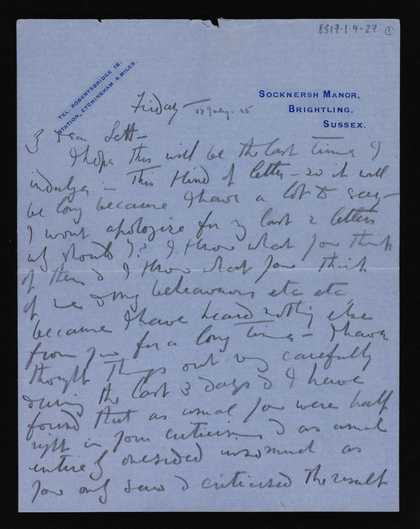 8517.1.4-27 1
TEL. ROBERTSBRIDGE 18.
STATION, ETCHINGHAM 4 MILES.
SOCKNERSH MANOR,
BRIGHTLING,
SUSSEX.
Friday 25
dear
I hope this will be the last time I
indulge in this kind of letter – so it will
be long because I have a lot to say –
I wont apologise for my last 2 letters
why should I? I know what you think
of them & I know what you think
of me & my behaviours etc etc
because I have heard nothing else
from you for a long time – I have
thought things out very carefully
during the last 3 days & I have
found that as usual you were half
right in your criticisms & as usual
entirely onesided insomuch as
you only saw & criticised the result